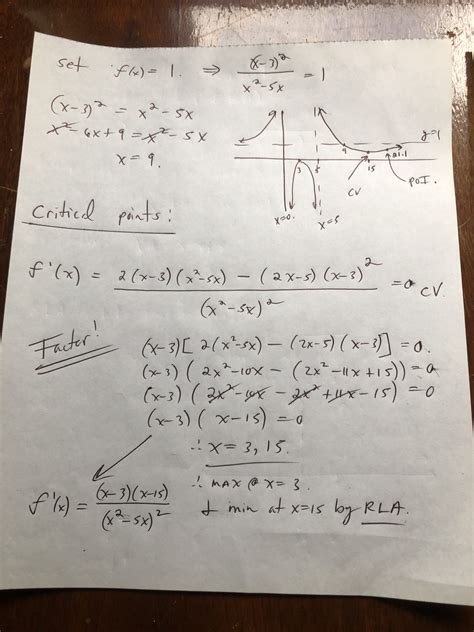 set f(x) = 1. ⇒ (x-3)² / x²-5x = 1
(x-3)² = x² - 5x
x² - 6x + 9 = x² - 5x
x = 9.
y=1
9
21.1
3 5 15
CV
POI.
x=0. x=5
Critical points:
f'(x) = 2(x-3)(x²-5x) - (2x-5)(x-3)² / (x²-5x)² = 0 CV.
Factor!
(x-3)[2(x²-5x) - (2x-5)(x-3)] = 0.
(x-3)(2x²-10x - (2x²-11x+15)) = 0
(x-3)(2x²-10x - 2x²+11x-15) = 0
(x-3)(x-15) = 0
∴ x = 3, 15.
f'(x) = (x-3)(x-15) / (x²-5x)²
∴ MAX @ x = 3.
+ min at x=15 by RLA.